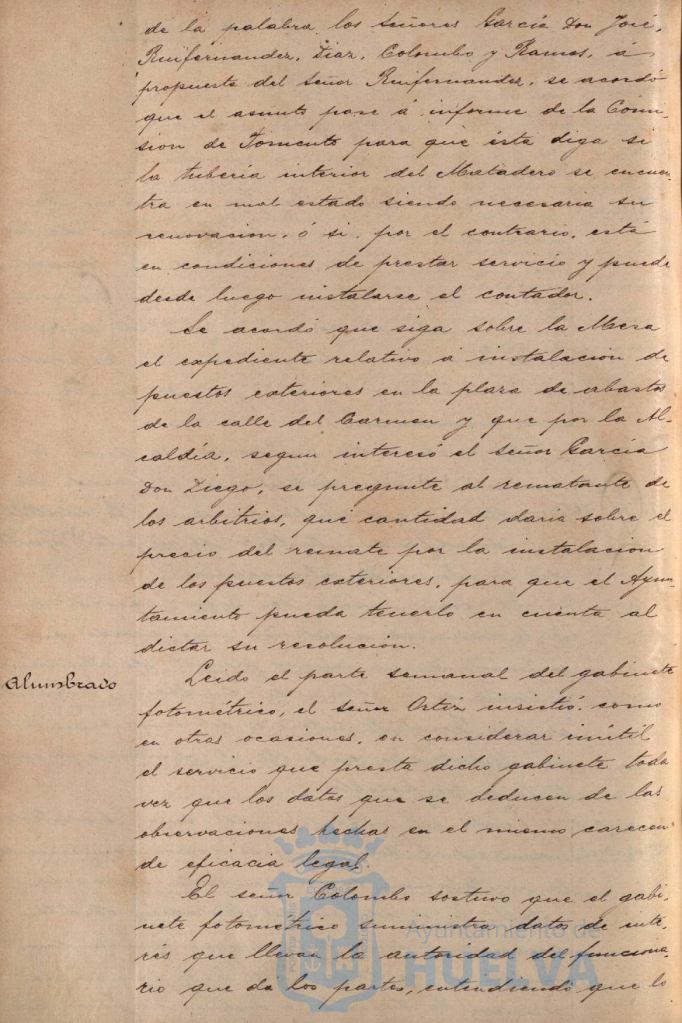 de la palabra los señores García Don José,
Ruifernandez, Diaz, Colombo y Ramos, á
propuesta del señor Ruifernandez, se acordó
que el asunto pase á informe de la Comi-
sion de Fomento para que ésta diga si
la tubería interior del Matadero se encuen-
tra en mal estado siendo necesaria su
renovacion, ó si, por el contrario, está
en condiciones de prestar servicio y puede
desde luego instalarse el contador.
Se acordó que siga sobre la Mesa
el expediente relativo á instalacion de
puestos exteriores en la plaza de abastos
de la calle del Carmen y que por la Al-
caldía, segun interesó el señor García
Don Diego, se pregunte al rematante de
los arbitrios, que cantidad daria sobre el
precio del remate por la instalacion
de los puestos exteriores, para que el Ayun-
tamiento pueda tenerlo en cuenta al
dictar su resolucion.
Alumbrado
Leido el parte semanal del gabinete
fotométrico, el señor Ortiz insistió, como
en otras ocasiones, en considerar inútil
el servicio que presta dicho gabinete toda
vez que los datos que se deducen de las
observaciones hechas en el mismo carecen
de eficacia legal.
El señor Colombo sostuvo que el gabi-
nete fotométrico suministra datos de inte-
rés que llevan la autoridad del funciona-
rio que da los partes, entendiendo que lo
Ayuntamiento de
HUELVA